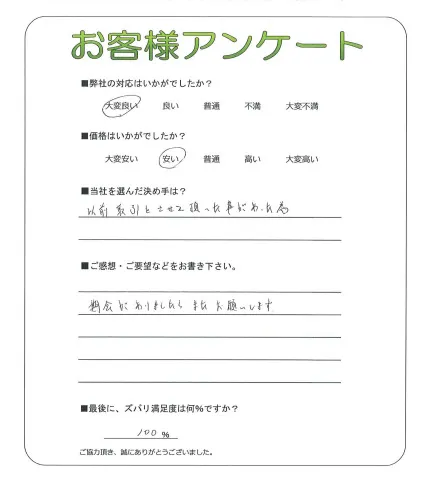 お客様アンケート
■弊社の対応はいかがでしたか？
大変良い 良い 普通 不満 大変不満
■価格はいかがでしたか？
大変安い 安い 普通 高い 大変高い
■当社を選んだ決め手は？
以前取引をさせて頂いた事があった為
■ご感想・ご要望などをお書き下さい。
機会がありましたらまたお願いします
■最後に、ズバリ満足度は何％ですか？
100 %
ご協力頂き、誠にありがとうございました。